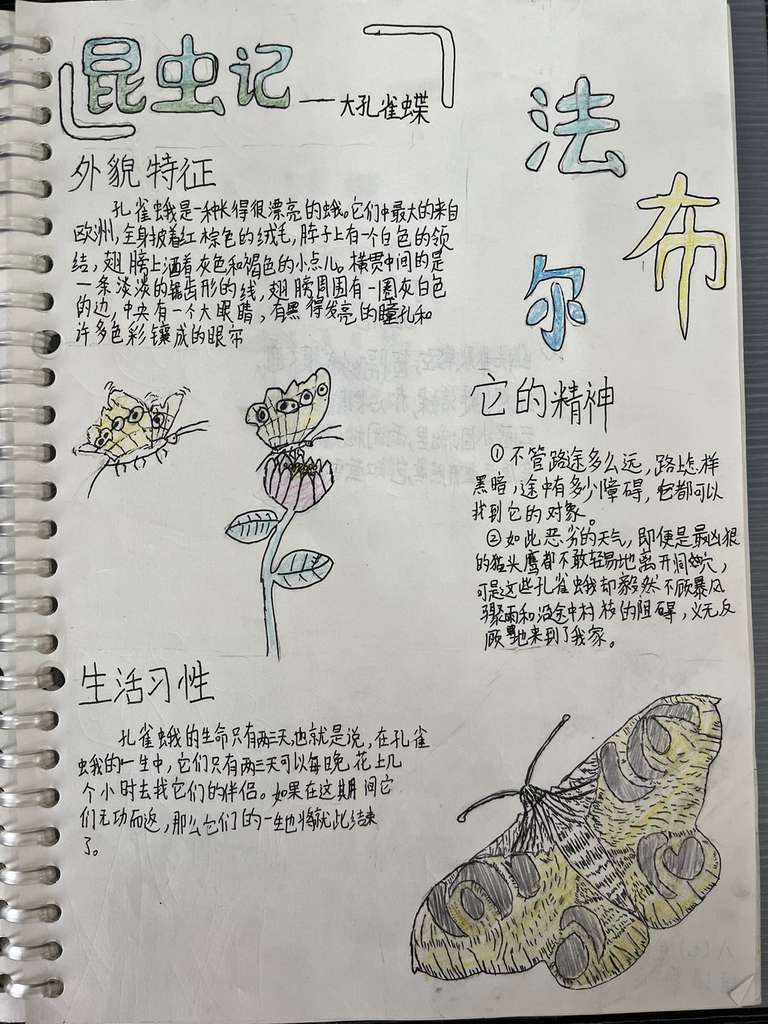 昆虫记——大孔雀蝶
法
布
尔
外貌特征
孔雀蛾是一种长得很漂亮的蛾。它们中最大的来自
欧洲,全身披着红棕色的绒毛,脖子上有一个白色的领
结,翅膀上洒着灰色和褐色的小点儿。横贯中间的是
一条淡淡的锯齿形的线,翅膀周围有一圈灰白色
的边,中央有一个大眼睛,有黑得发亮的瞳孔和
许多色彩镶成的眼帘
它的精神
①不管路途多么远,路上怎样
黑暗,途中有多少障碍,它都可以
找到它的对象。
②如此恶劣的天气,即便是最凶狠
的猫头鹰都不敢轻易地离开洞穴,
可是这些孔雀蛾却毅然不顾暴风
骤雨和沿途中树枝的阻碍,义无反
顾地来到了我家。
生活习性
孔雀蛾的生命只有两三天,也就是说,在孔雀
蛾的一生中,它们只有两三天可以每晚花上几
个小时去找它们的伴侣。如果在这期间它
们无功而返,那么它们的一生也将就此结束
了。